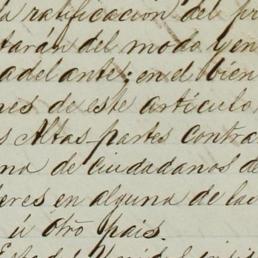 la ratificacion del pr
tarán del modo y en
adelante; en el bien
nes de este artículo
s Altas partes contra
na de ciudadanos de
eres en alguna de las
ú otro país.